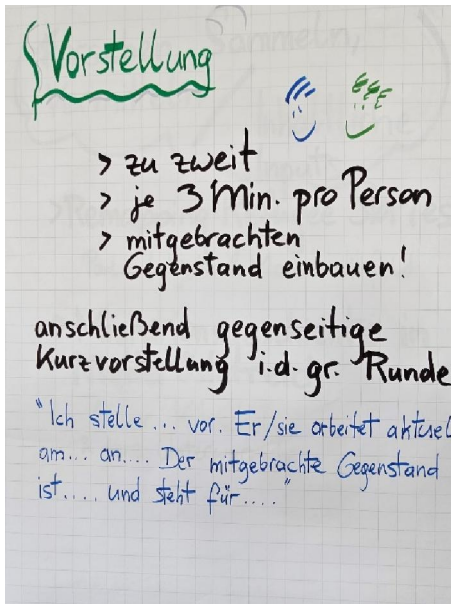 Vorstellung
> zu zweit
> je 3 Min. pro Person
> mitgebrachten
Gegenstand einbauen!
anschließend gegenseitige
Kurzvorstellung i.d. gr. Runde
"Ich stelle ... vor. Er/sie arbeitet aktuel
am... an.... Der mitgebrachte Gegenstand
ist.... und steht für...."